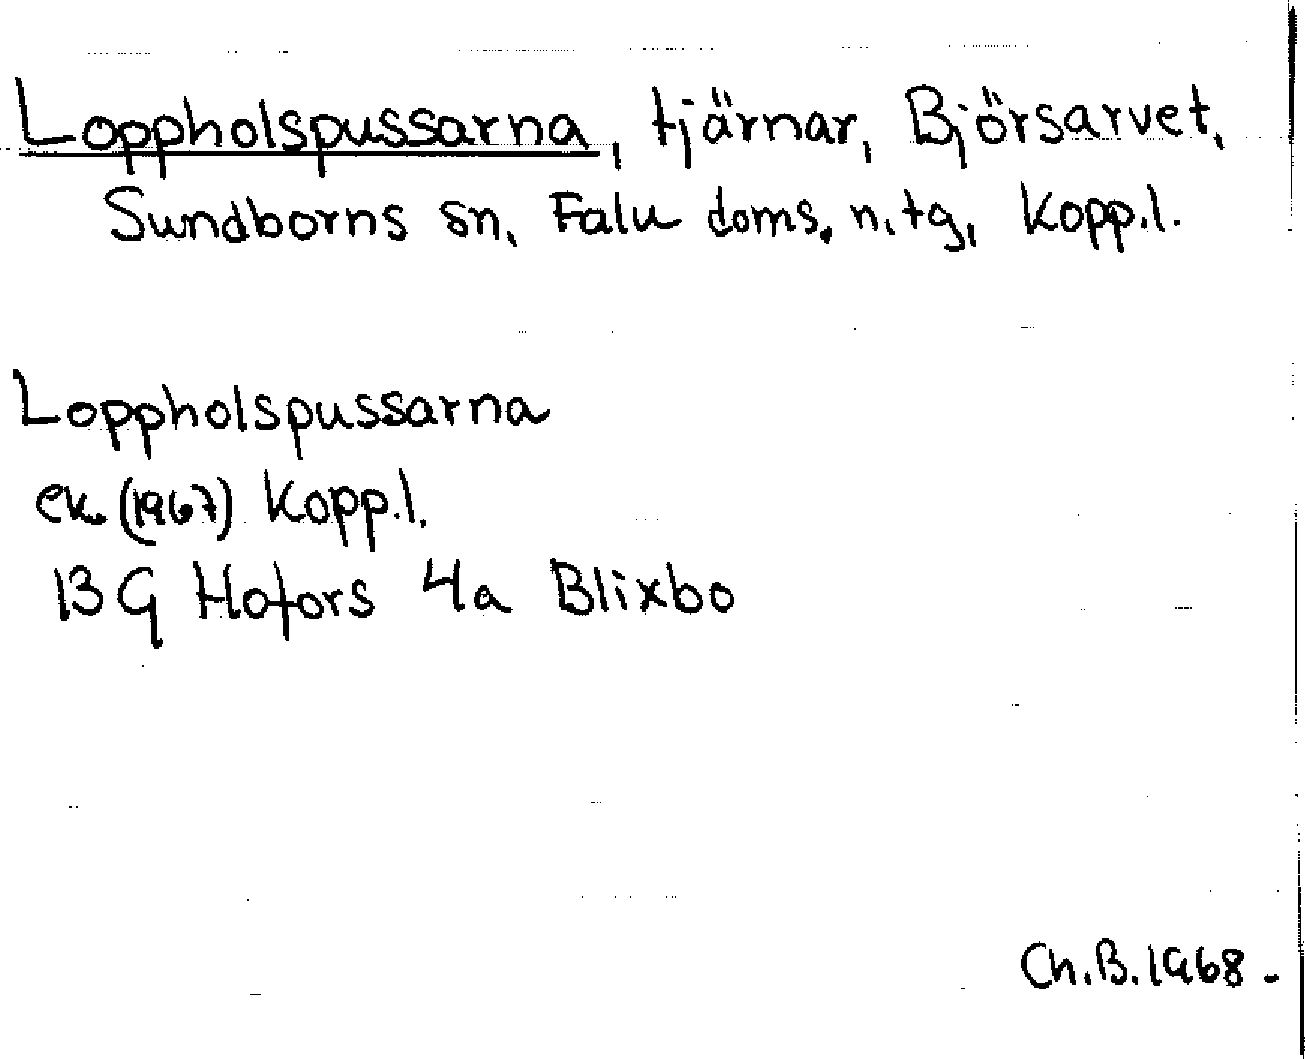 Loppholspussarna, tjärnar, Björsarvet,
Sundborns sn, Falu doms. n. tg, Kopp.l.
Loppholspussarna
ek. (1967) Kopp.l.
13 G Hofors 4a Blixbo
Ch.B.1968-